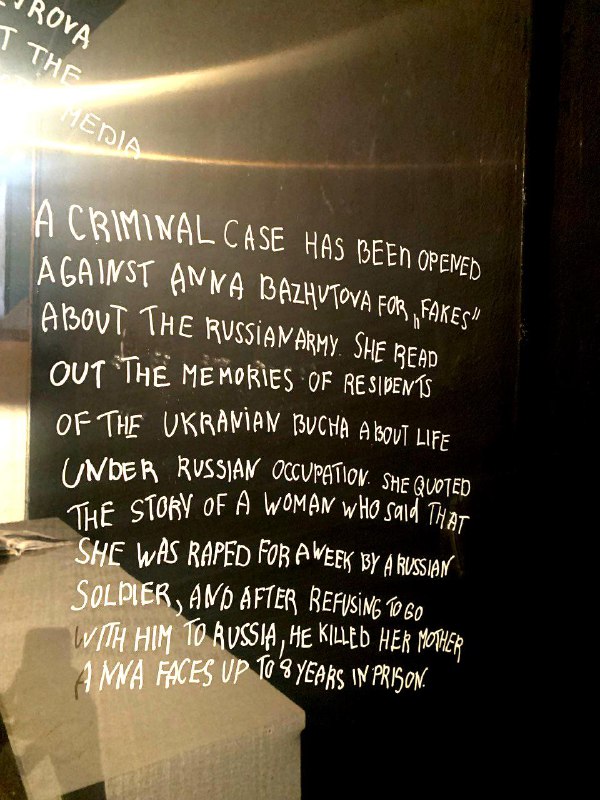 T THE
MEDIA
A CRIMINAL CASE HAS BEEN OPENED
AGAINST ANNA BAZHUTOVA FOR „FAKES”
ABOUT THE RUSSIAN ARMY. SHE READ
OUT THE MEMORIES OF RESIDENTS
OF THE UKRANIAN BUCHA ABOUT LIFE
UNDER RUSSIAN OCCUPATION. SHE QUOTED
THE STORY OF A WOMAN WHO SAID THAT
SHE WAS RAPED FOR A WEEK BY A RUSSIAN
SOLDIER, AND AFTER REFUSING TO GO
WITH HIM TO RUSSIA, HE KILLED HER MOTHER
ANNA FACES UP TO 8 YEARS IN PRISON.